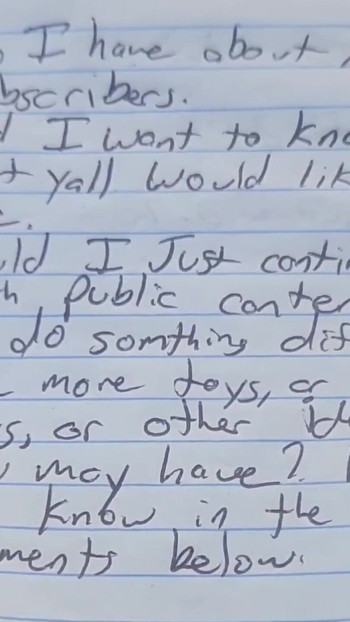 I have about
bscribers.
I want to kno
t yall would lik
ld I Just conti
h public conten
do somthing dif
more toys, or
s, or other id
may have?
know in the
ments below.